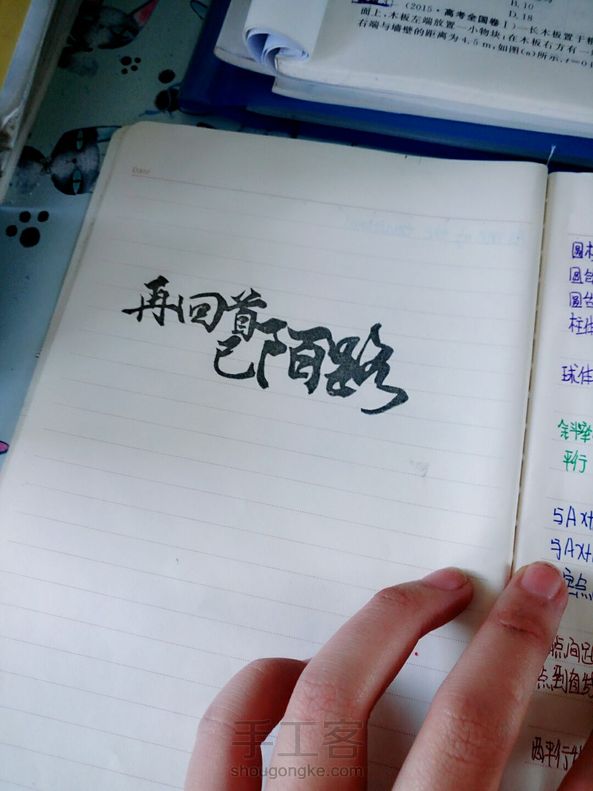 B.10
D.18
(2015·高考全国卷Ⅰ)一长木板置于
面上,木板左端放置一小物块;在木板右方有一
右端与墙壁的距离为4.5 m,如图(a)所示.t=0
Date
再回首
已陌路
圆
圆
圆台
柱
球体
斜率
平行
与Ax+
与Ax+
定点
点间
点到直线
两平行
手工客
shougongke.com